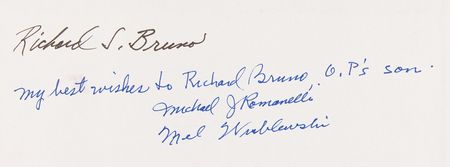 Richard S. Bruno
my best wishes to Richard Bruno, O.P's son.
Michael J Romanelli
Mel Wublewski